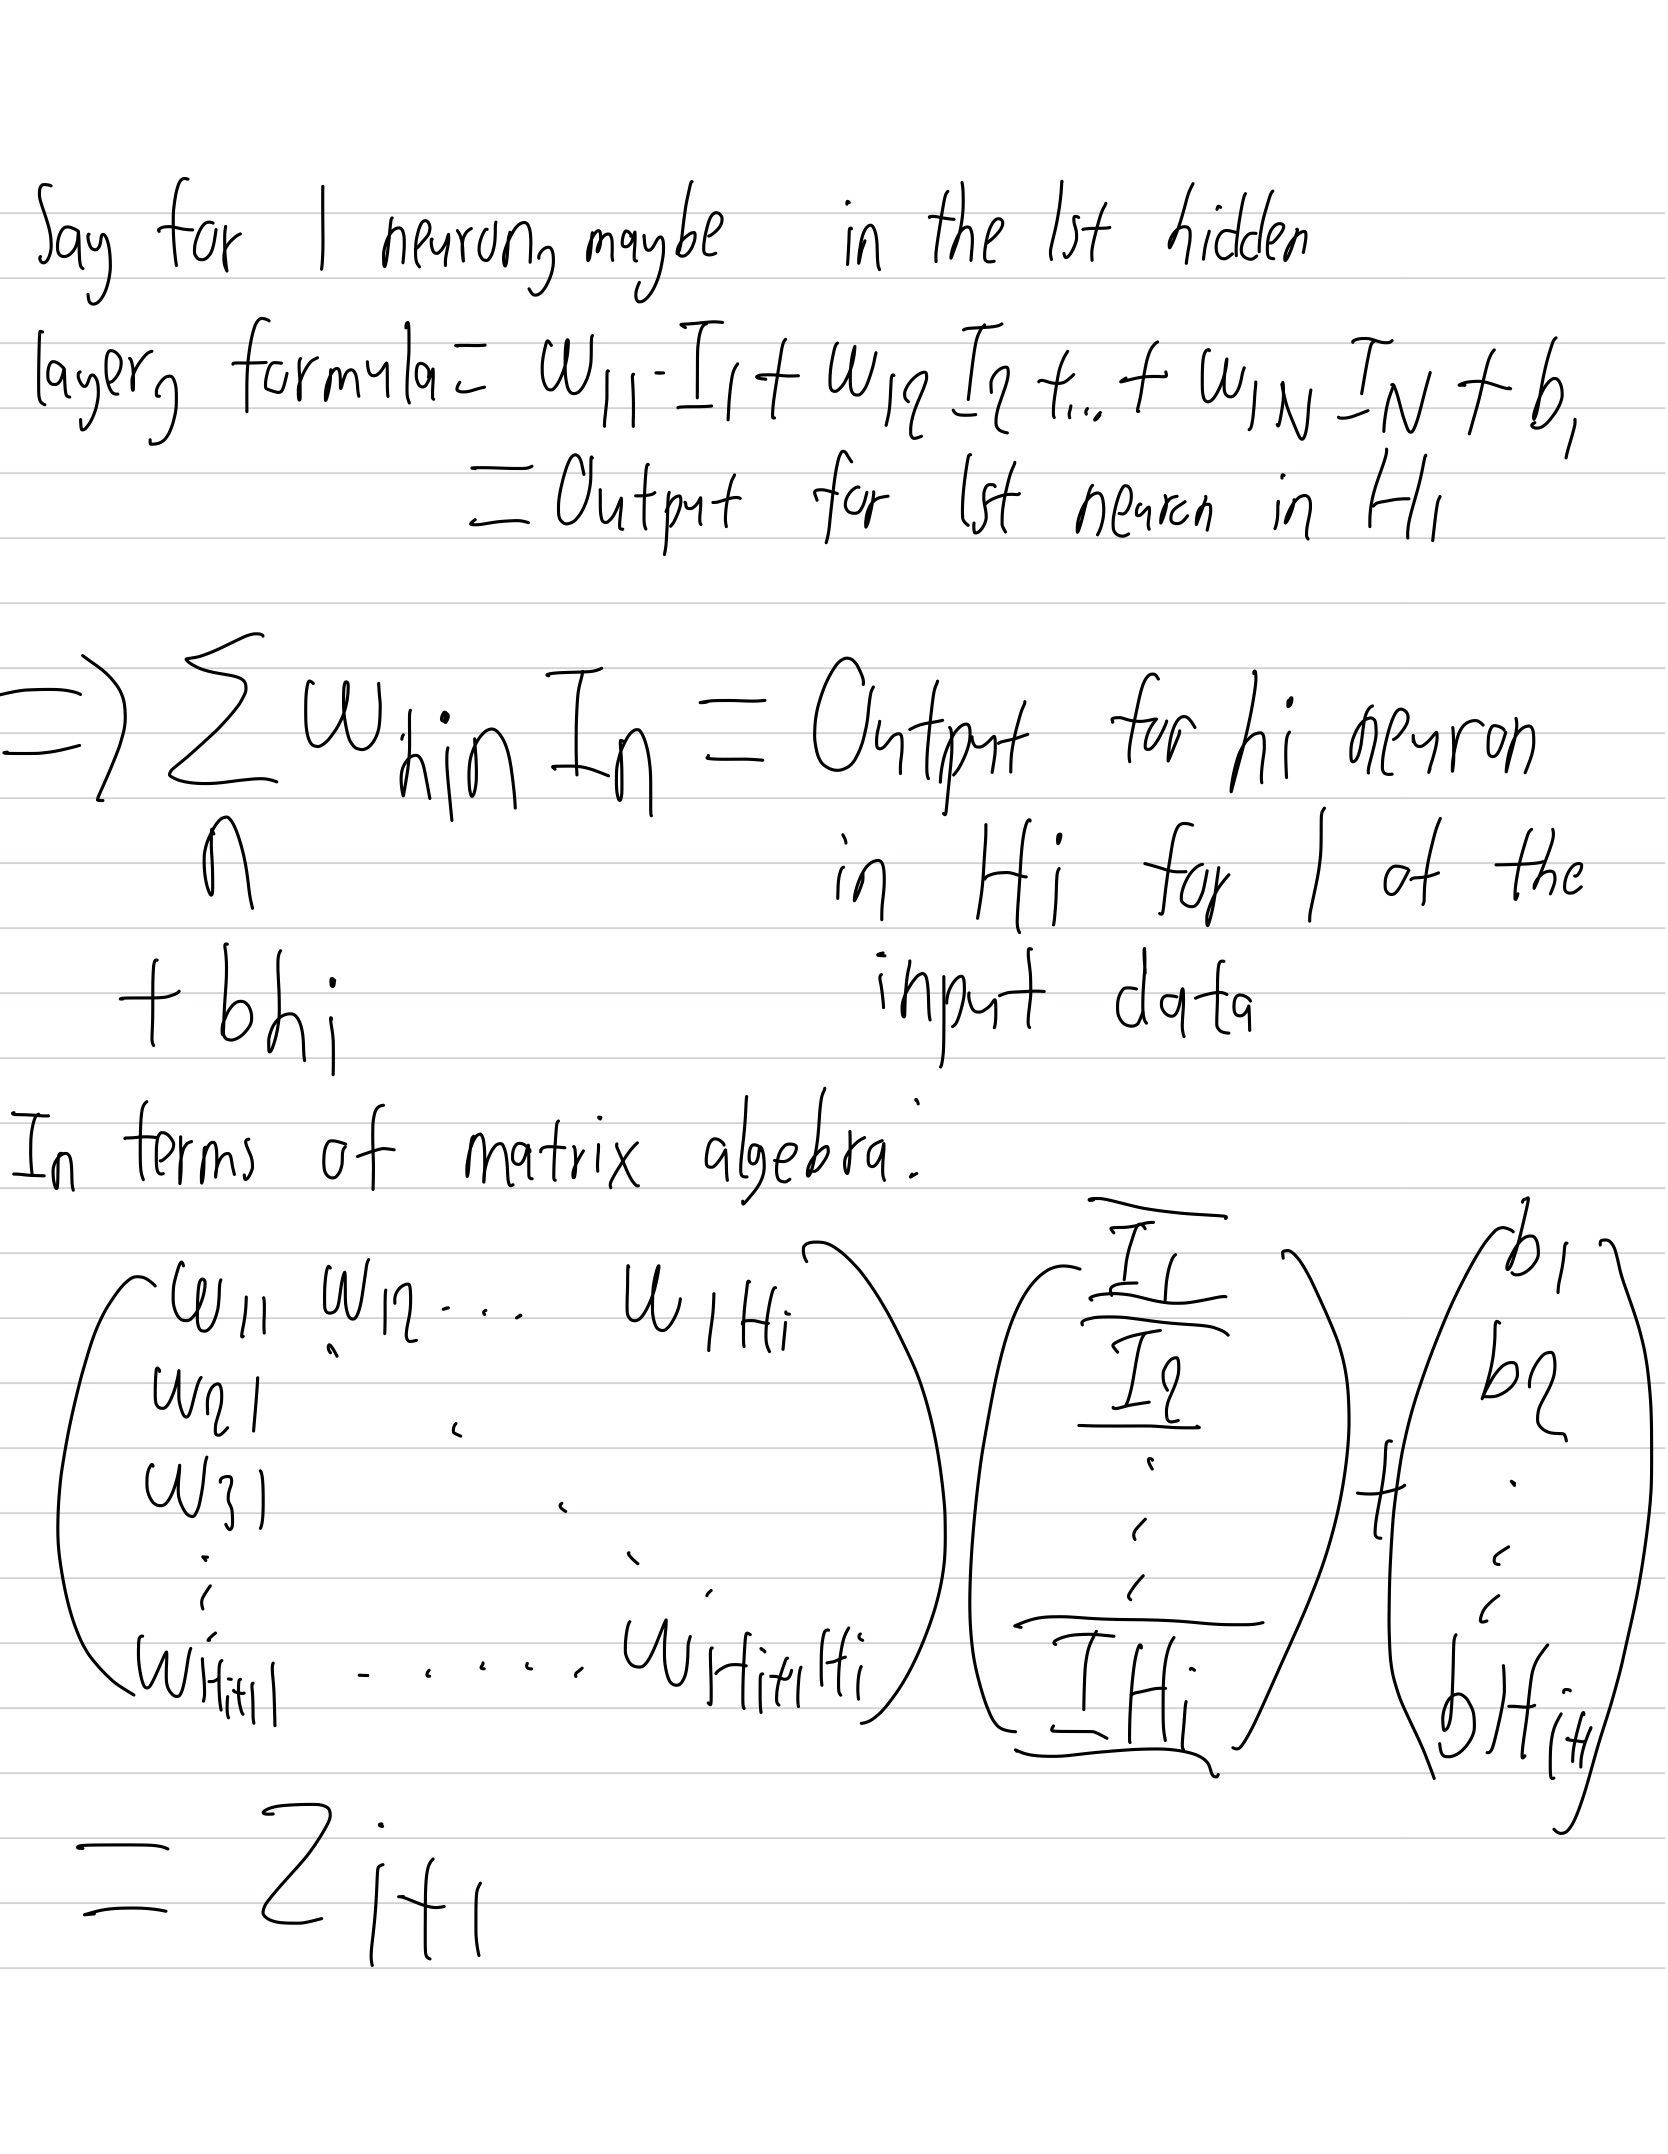 Say for 1 neuron, maybe in the 1st hidden
layer, formula = w₁₁·I₁ + w₁₂ I₂ + ... + w₁N IN + b₁
= Output for 1st neuron in H₁
⇒ ∑ whᵢn In = Output for hi neuron
n in Hi for 1 of the
+ bhi input data
In terms of matrix algebra:
w₁₁ w₁₂ .... w₁Hi I₁ b₁
w₂₁ I₂ + b₂
w₃₁
wHi+1 1 ..... wHi+1 Hi IHi bHi+1
= Zi+1